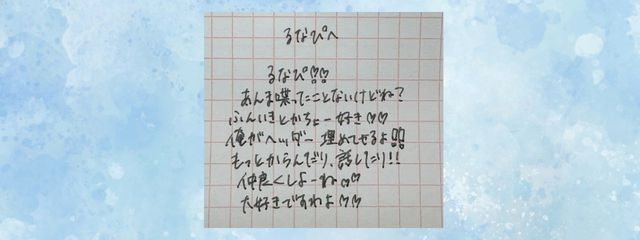 るなぴへ
るなぴ♡♡
あんま喋ったことないけどね?
ふんいきとかちょー好き♡♡
俺がヘッダー埋めてやるよ!!
もっとからんだり、話したり!!
仲良くしよーね♡♡
大好きですわよ♡♡